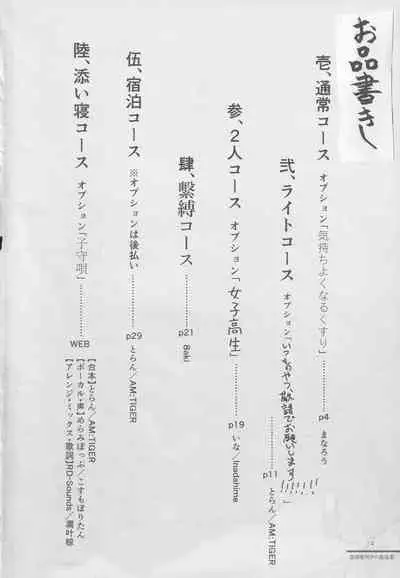 お品書きし
壱、通常コース オプション「気持ちよくなるくすり」
p4 まなろう
弐、ライトコース オプション「いつものやつ、敬語でお願いします!!!!!!」
p11 とらん/AM:TIGER
参、2人コース オプション「女子高生」
p19 いな/Inadahime
肆、緊縛コース
p21 8aki
伍、宿泊コース ※オプションは後払い
p29 とらん/AM:TIGER
陸、添い寝コース オプション「子守唄」
WEB
【台本】とらん/AM:TIGER
【ボーカル・声】めらみぽっぷ/こすもぽりたん
【アレンジ・ミックス・歌詞】RD-Sounds/凋叶棕
2